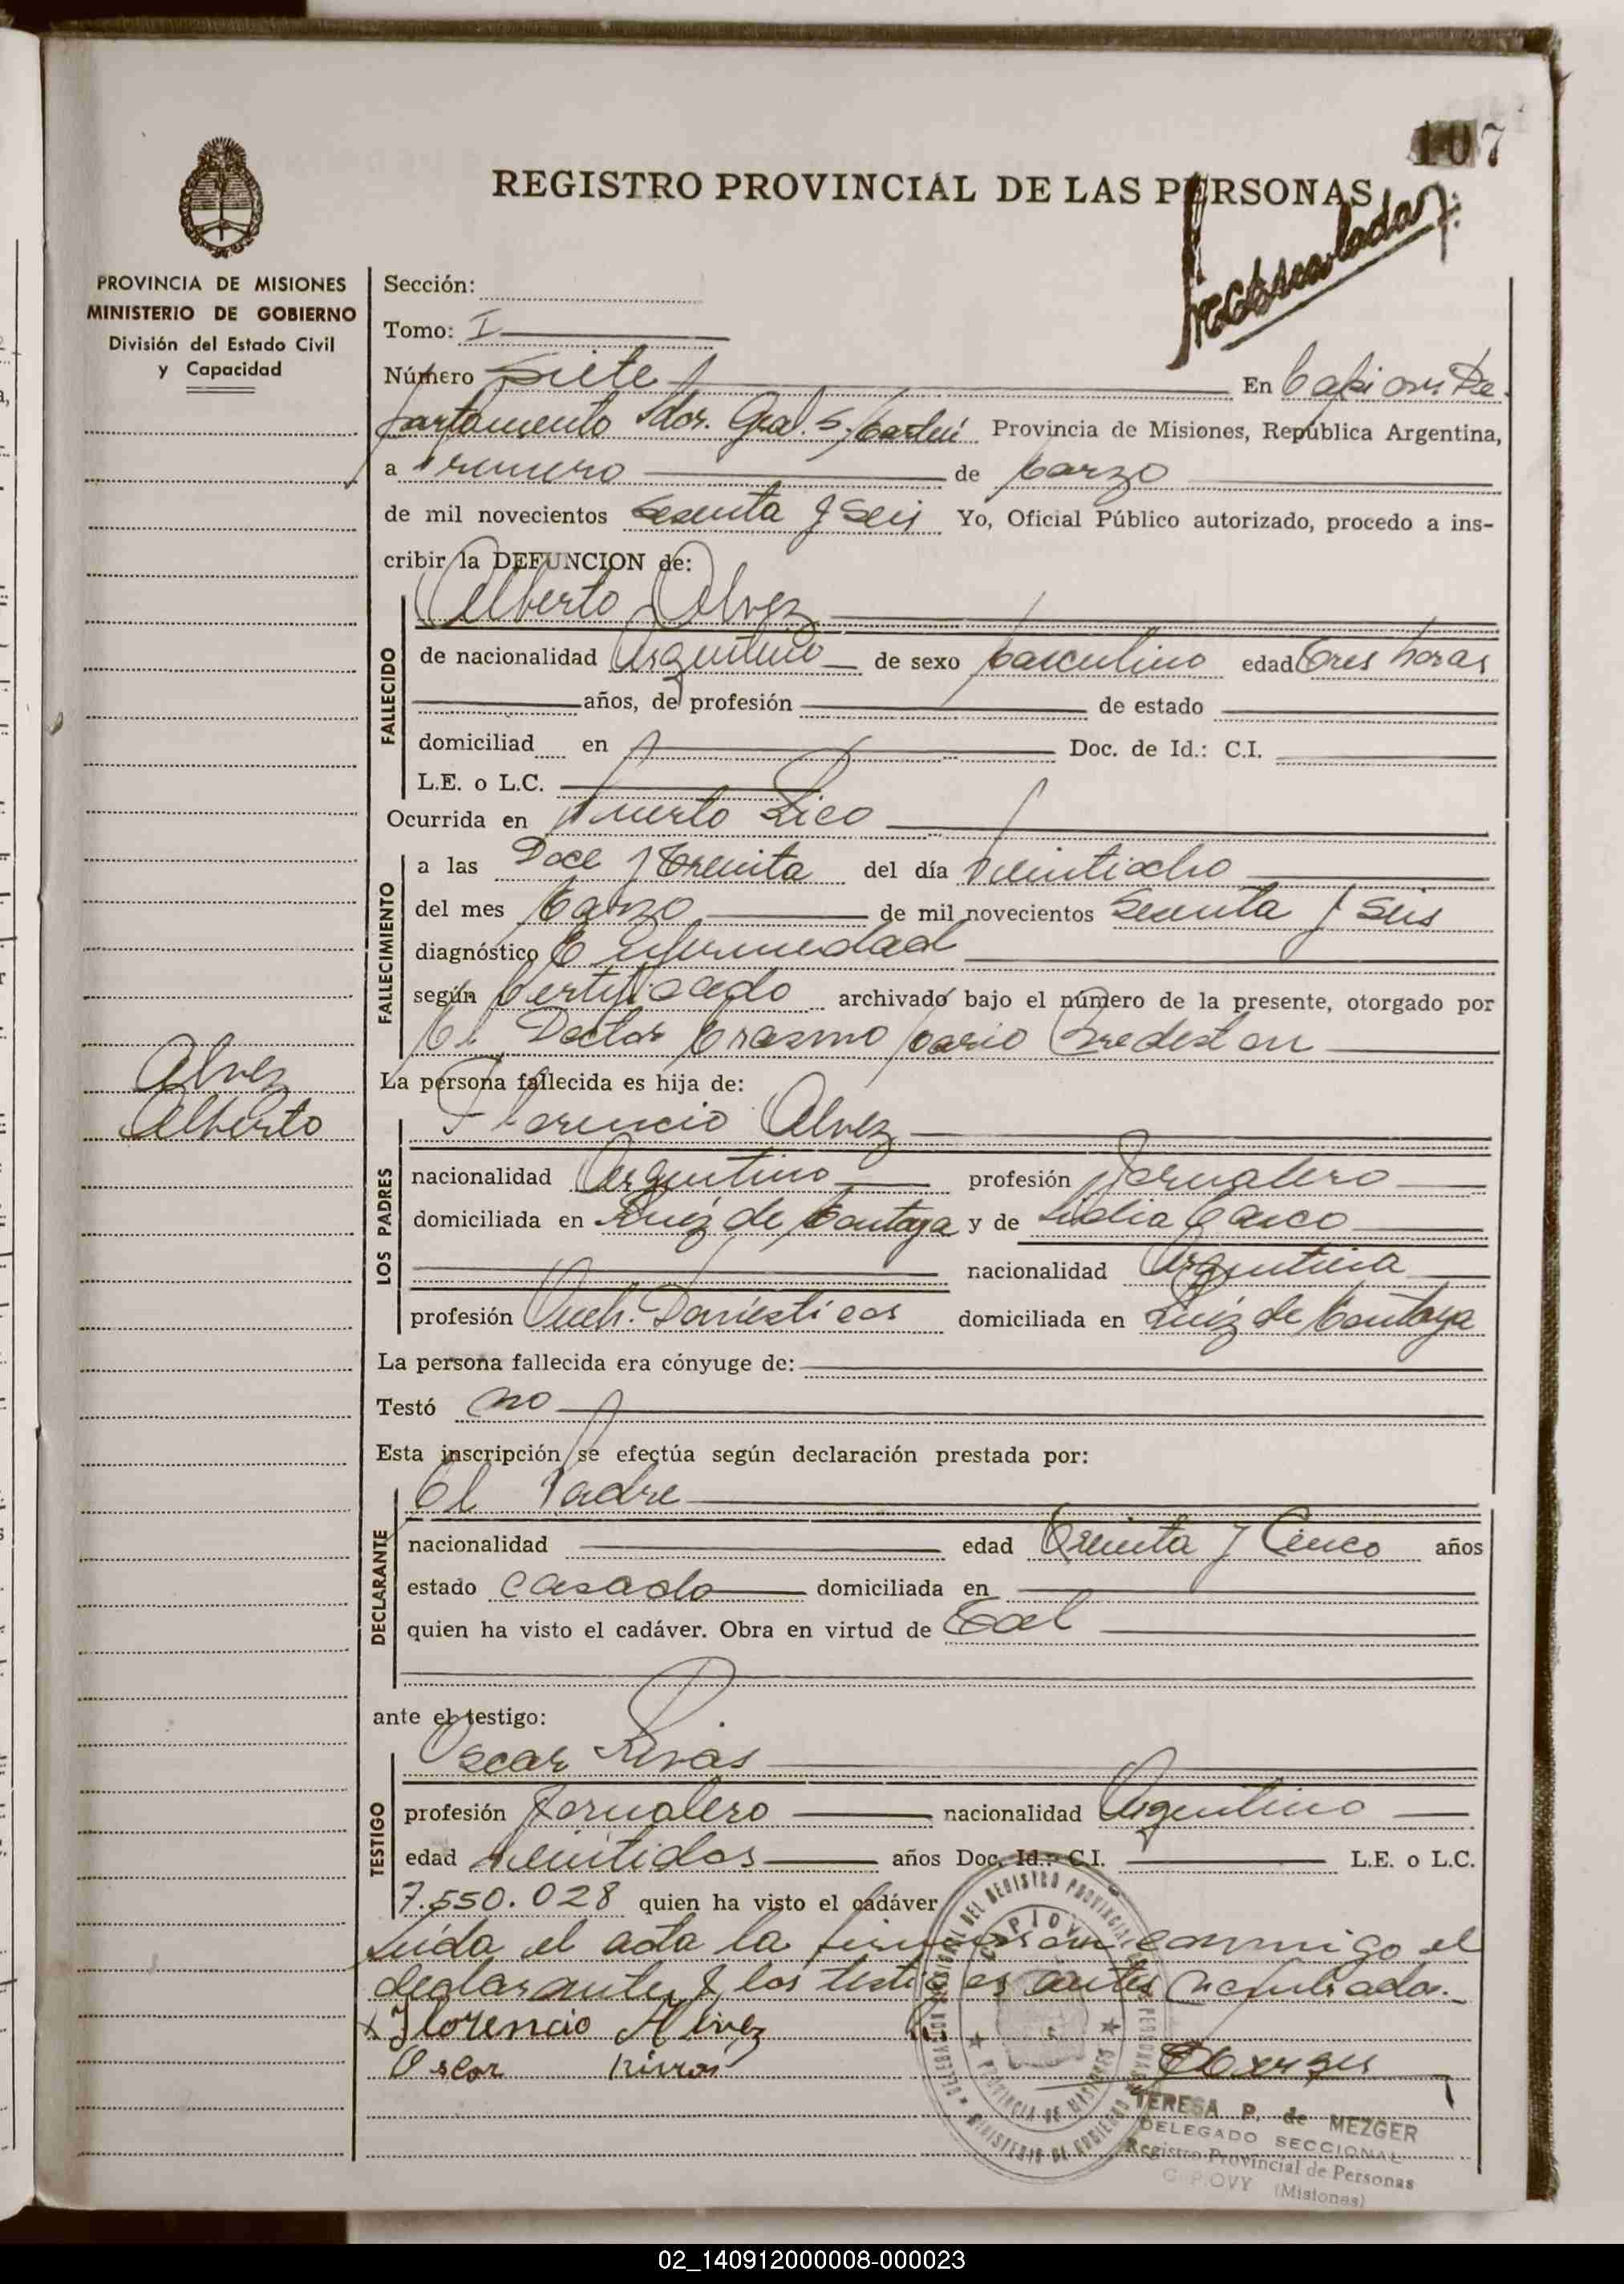 107
REGISTRO PROVINCIAL DE LAS PERSONAS
PROVINCIA DE MISIONES
MINISTERIO DE GOBIERNO
División del Estado Civil
y Capacidad
Sección:
Tomo: I
Número Siete En Capiovi De
partamento Ldor. Gral. S. Martín Provincia de Misiones, República Argentina,
a Primero de Marzo
de mil novecientos sesenta y seis Yo, Oficial Público autorizado, procedo a ins-
cribir la DEFUNCION de:
Alberto Alvez
FALLECIDO
de nacionalidad Argentino de sexo Masculino edad Tres horas
años, de profesión de estado
domiciliad en Doc. de Id.: C.I.
L.E. o L.C.
Ocurrida en Puerto Rico
FALLECIMIENTO
a las Doce y Treinta del día Veintiocho
del mes Marzo de mil novecientos Sesenta y Seis
diagnóstico Enfermedad
según Certificado archivado bajo el número de la presente, otorgado por
El Doctor Erasmo Mario
La persona fallecida es hija de:
Alvez
Alberto
Florencio Alvez
LOS PADRES
nacionalidad Argentino profesión Jornalero
domiciliada en Ruiz de Montoya y de Lidia Casco
nacionalidad Argentina
profesión Queh. Domésticos domiciliada en Ruiz de Montoya
La persona fallecida era cónyuge de:
Testó no
Esta inscripción se efectúa según declaración prestada por:
El Padre
DECLARANTE
nacionalidad edad Treinta y Cinco años
estado casado domiciliada en
quien ha visto el cadáver. Obra en virtud de Tal
ante el testigo:
Oscar Rivas
TESTIGO
profesión Jornalero nacionalidad Argentino
edad Veintidos años Doc. Id.: C.I. L.E. o L.C.
7.550.028 quien ha visto el cadáver
Leída el acta la firmaron conmigo el
declarante y los testigos antes nombrados.
x Florencio Alvez
Oscar Rivas
TERESA P. de MEZGER
DELEGADO SECCIONAL
Registro Provincial de Personas
CAPIOVY (Misiones)
02_140912000008-000023